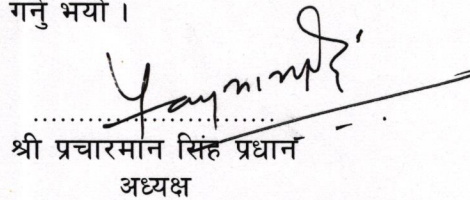 गर्नु भयो ।
श्री प्रचारमान सिंह प्रधान
अध्यक्ष